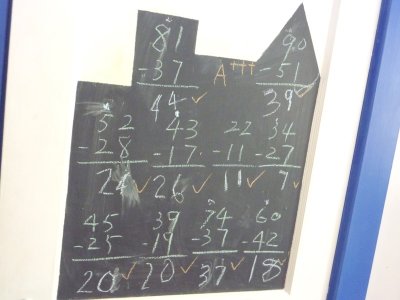 81 90
-37 A+++ -51
44 ✓ 39 ✓
52 43 22 34
-28 -17 -11 -27
24 ✓ 26 ✓ 11 ✓ 7 ✓
45 39 74 60
-25 -19 -37 -42
20 ✓ 20 ✓ 37 ✓ 18 ✓